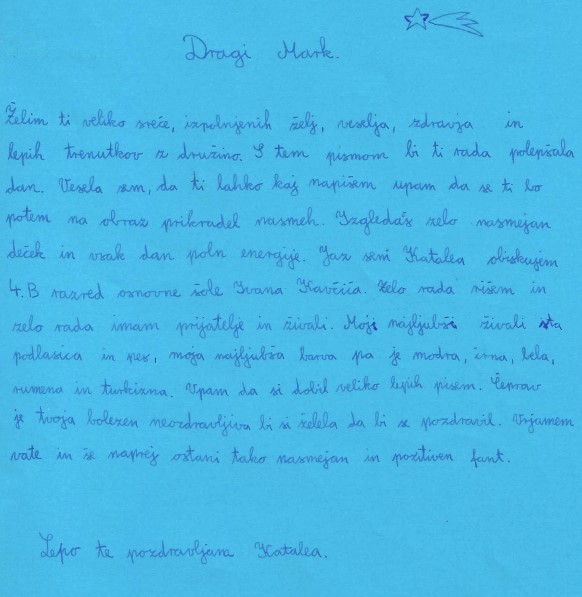 Dragi Mark.
Želim ti veliko sreče, izpolnjenih želj, veselja, zdravja in
lepih trenutkov z družino. S tem pismom bi ti rada polepšala
dan. Vesela sem, da ti lahko kaj napišem upam da se ti bo
potem na obraz prikradel nasmeh. Izgledaš zelo nasmejan
deček in vsak dan poln energije. Jaz sem Katalea obiskujem
4. B razred osnovne šole Ivana Kavčiča. Zelo rada rišem in
zelo rada imam prijatelje in živali. Moji najljubši živali sta
podlasica in pes, moja najljubša barva pa je modra, črna, bela,
rumena in turkizna. Upam da si dobil veliko lepih pisem. Čeprav
je tvoja bolezen neozdravljiva bi si želela da bi se pozdravil. Vrjamem
vate in še naprej ostani tako nasmejan in pozitiven fant.
Lepo te pozdravljama Katalea.